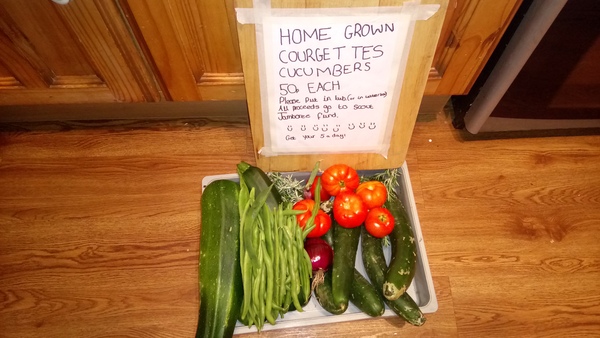 HOME GROWN
COURGETTES
CUCUMBERS
50p EACH
Please Put in tub (or in
All proceeds go to Scout
Jamboree fund.
Get your 5 a day!